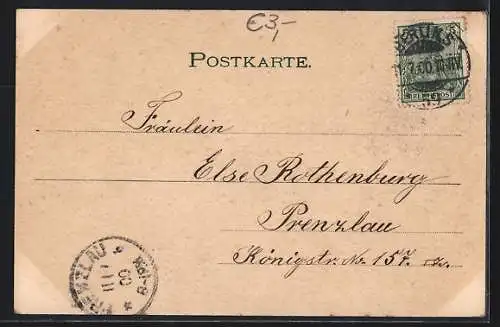 €3,-
POSTKARTE.
BERLIN
Fräulein
Else Rothenburg
Prenzlau
Königstr. No. 157.
PRENZLAU